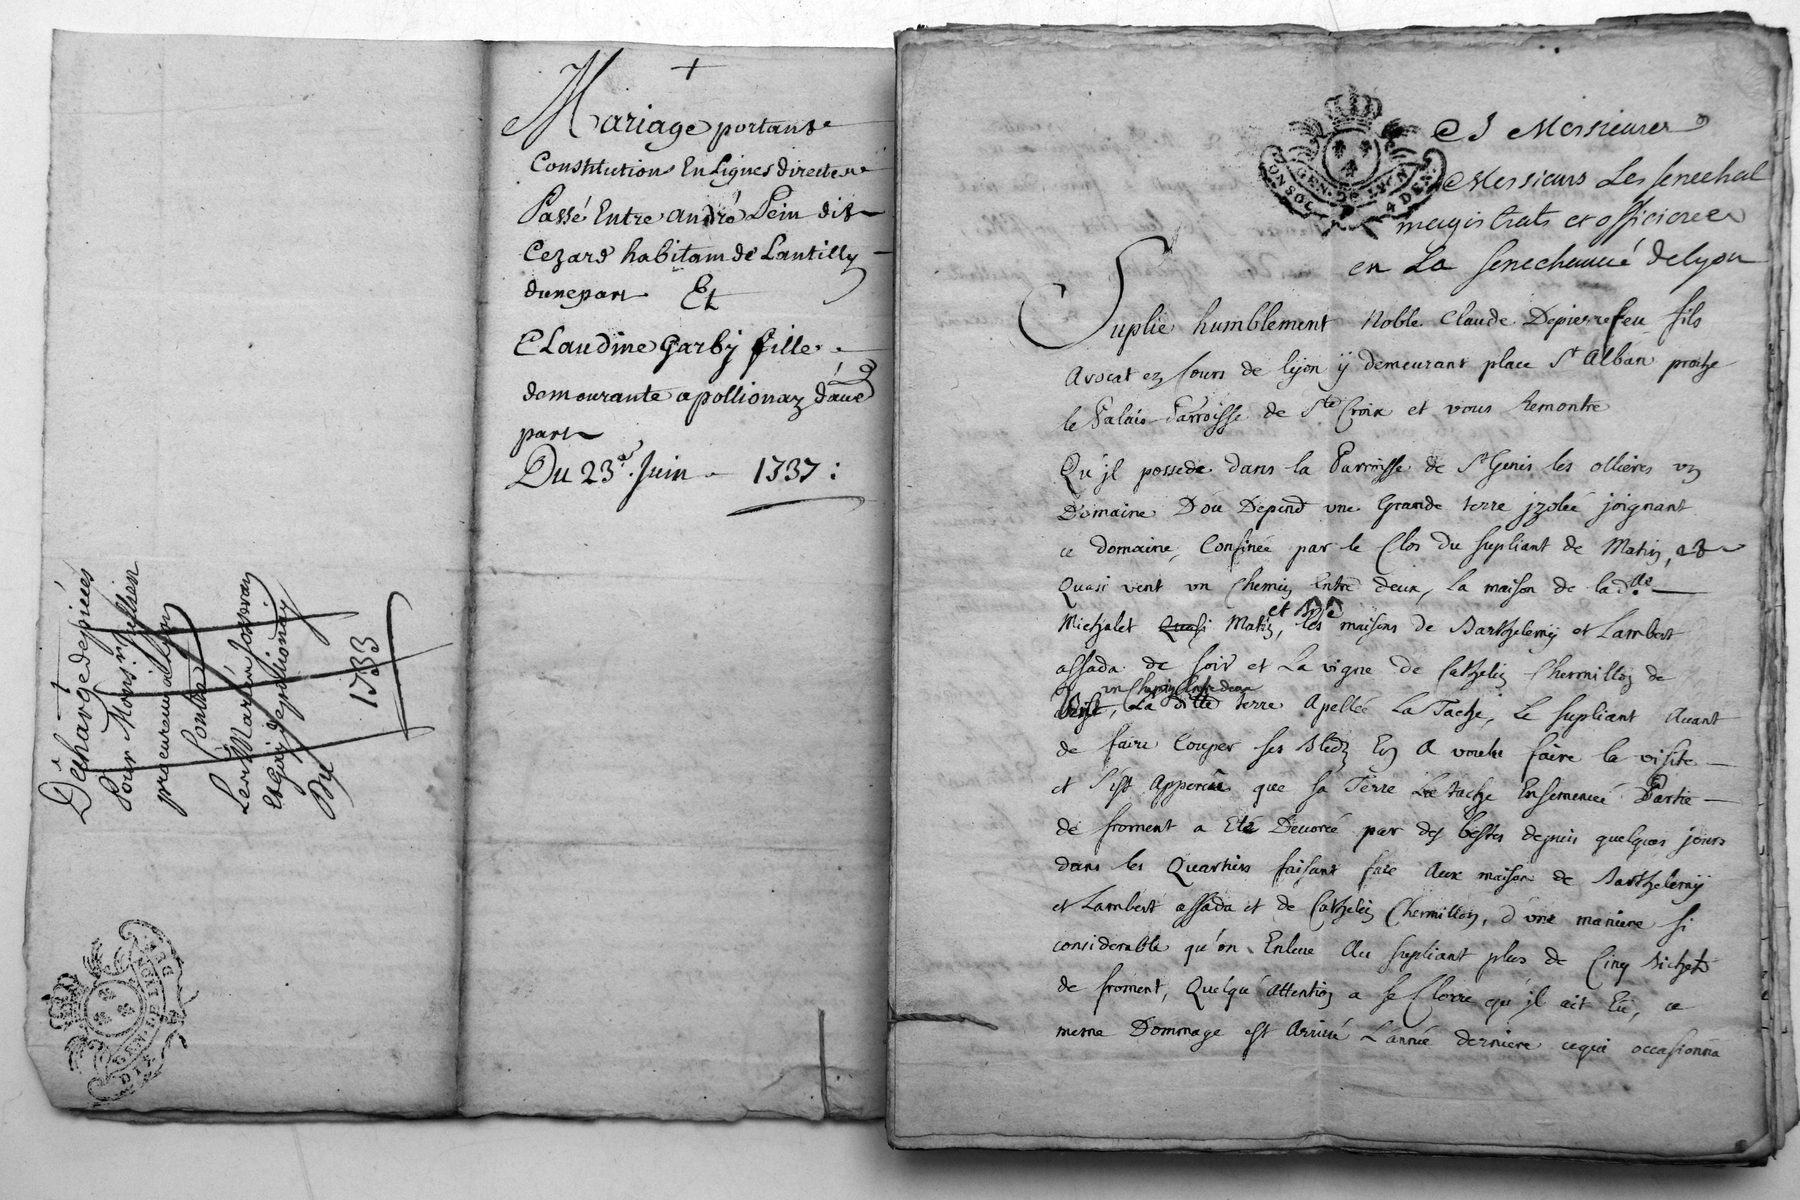 Mariage portant
Constitution En Lignes directe
Passé Entre andré Pein dit
Cezard habitant de Lantilly
dune part Et
CLaudine Garby fille
demeurante a pollionay d'autre
part
Du 23e. Juin 1737 :
Décharge de pieces
Pour Mons.r
procureur a Lyon
Contre
Les Martin
Et Gaij de polionaij
Du 1733
GEN. DE LYON
A Messieurs
Messieurs Les senechal
magistrats et officiers
en La senechaucé de Lyon
Suplie humblement Noble Claude Depierrefeu fils
Avocat ez Cours de lyon ÿ demeurant place St Alban proche
le Palais Parroisse de Ste Croix et vous Remontre
Qu'jl possede dans la Parroisse de St Genis les ollières un
Domaine D'ou Depend une Grande terre jzolée joignant
ce domaine, Confinée par le Clos du supliant de Matin, et
Quasi vent un Chemin Entre deux, la maison de la d.lle
Michalet Quasi Matin, et Bize les maisons de Barthelemÿ et Lambert
assada de soir et La vigne de Cathelin Chermillon de
un Chemin Entre deux
La ditte terre Apellée La Tache, Le supliant Avant
de faire Couper ses Bledz En A voulu faire la visite
et s'est Apperceu que sa Terre La tache Ensemencée Partie
de froment a Eté Devorée par des bestes depuis quelques jours
dans les Quartiers faisant face Aux maison de Barthelemÿ
et Lambert assada et de Cathelin Chermillon, d'une maniere si
considerable qu'on Enleve Au supliant plus de Cinq Bichets
de froment, Quelqu'attention a se Clorre qu'jl ait Eü, ce
meme Dommage est Arrivé L'année derniere cequi occasionna